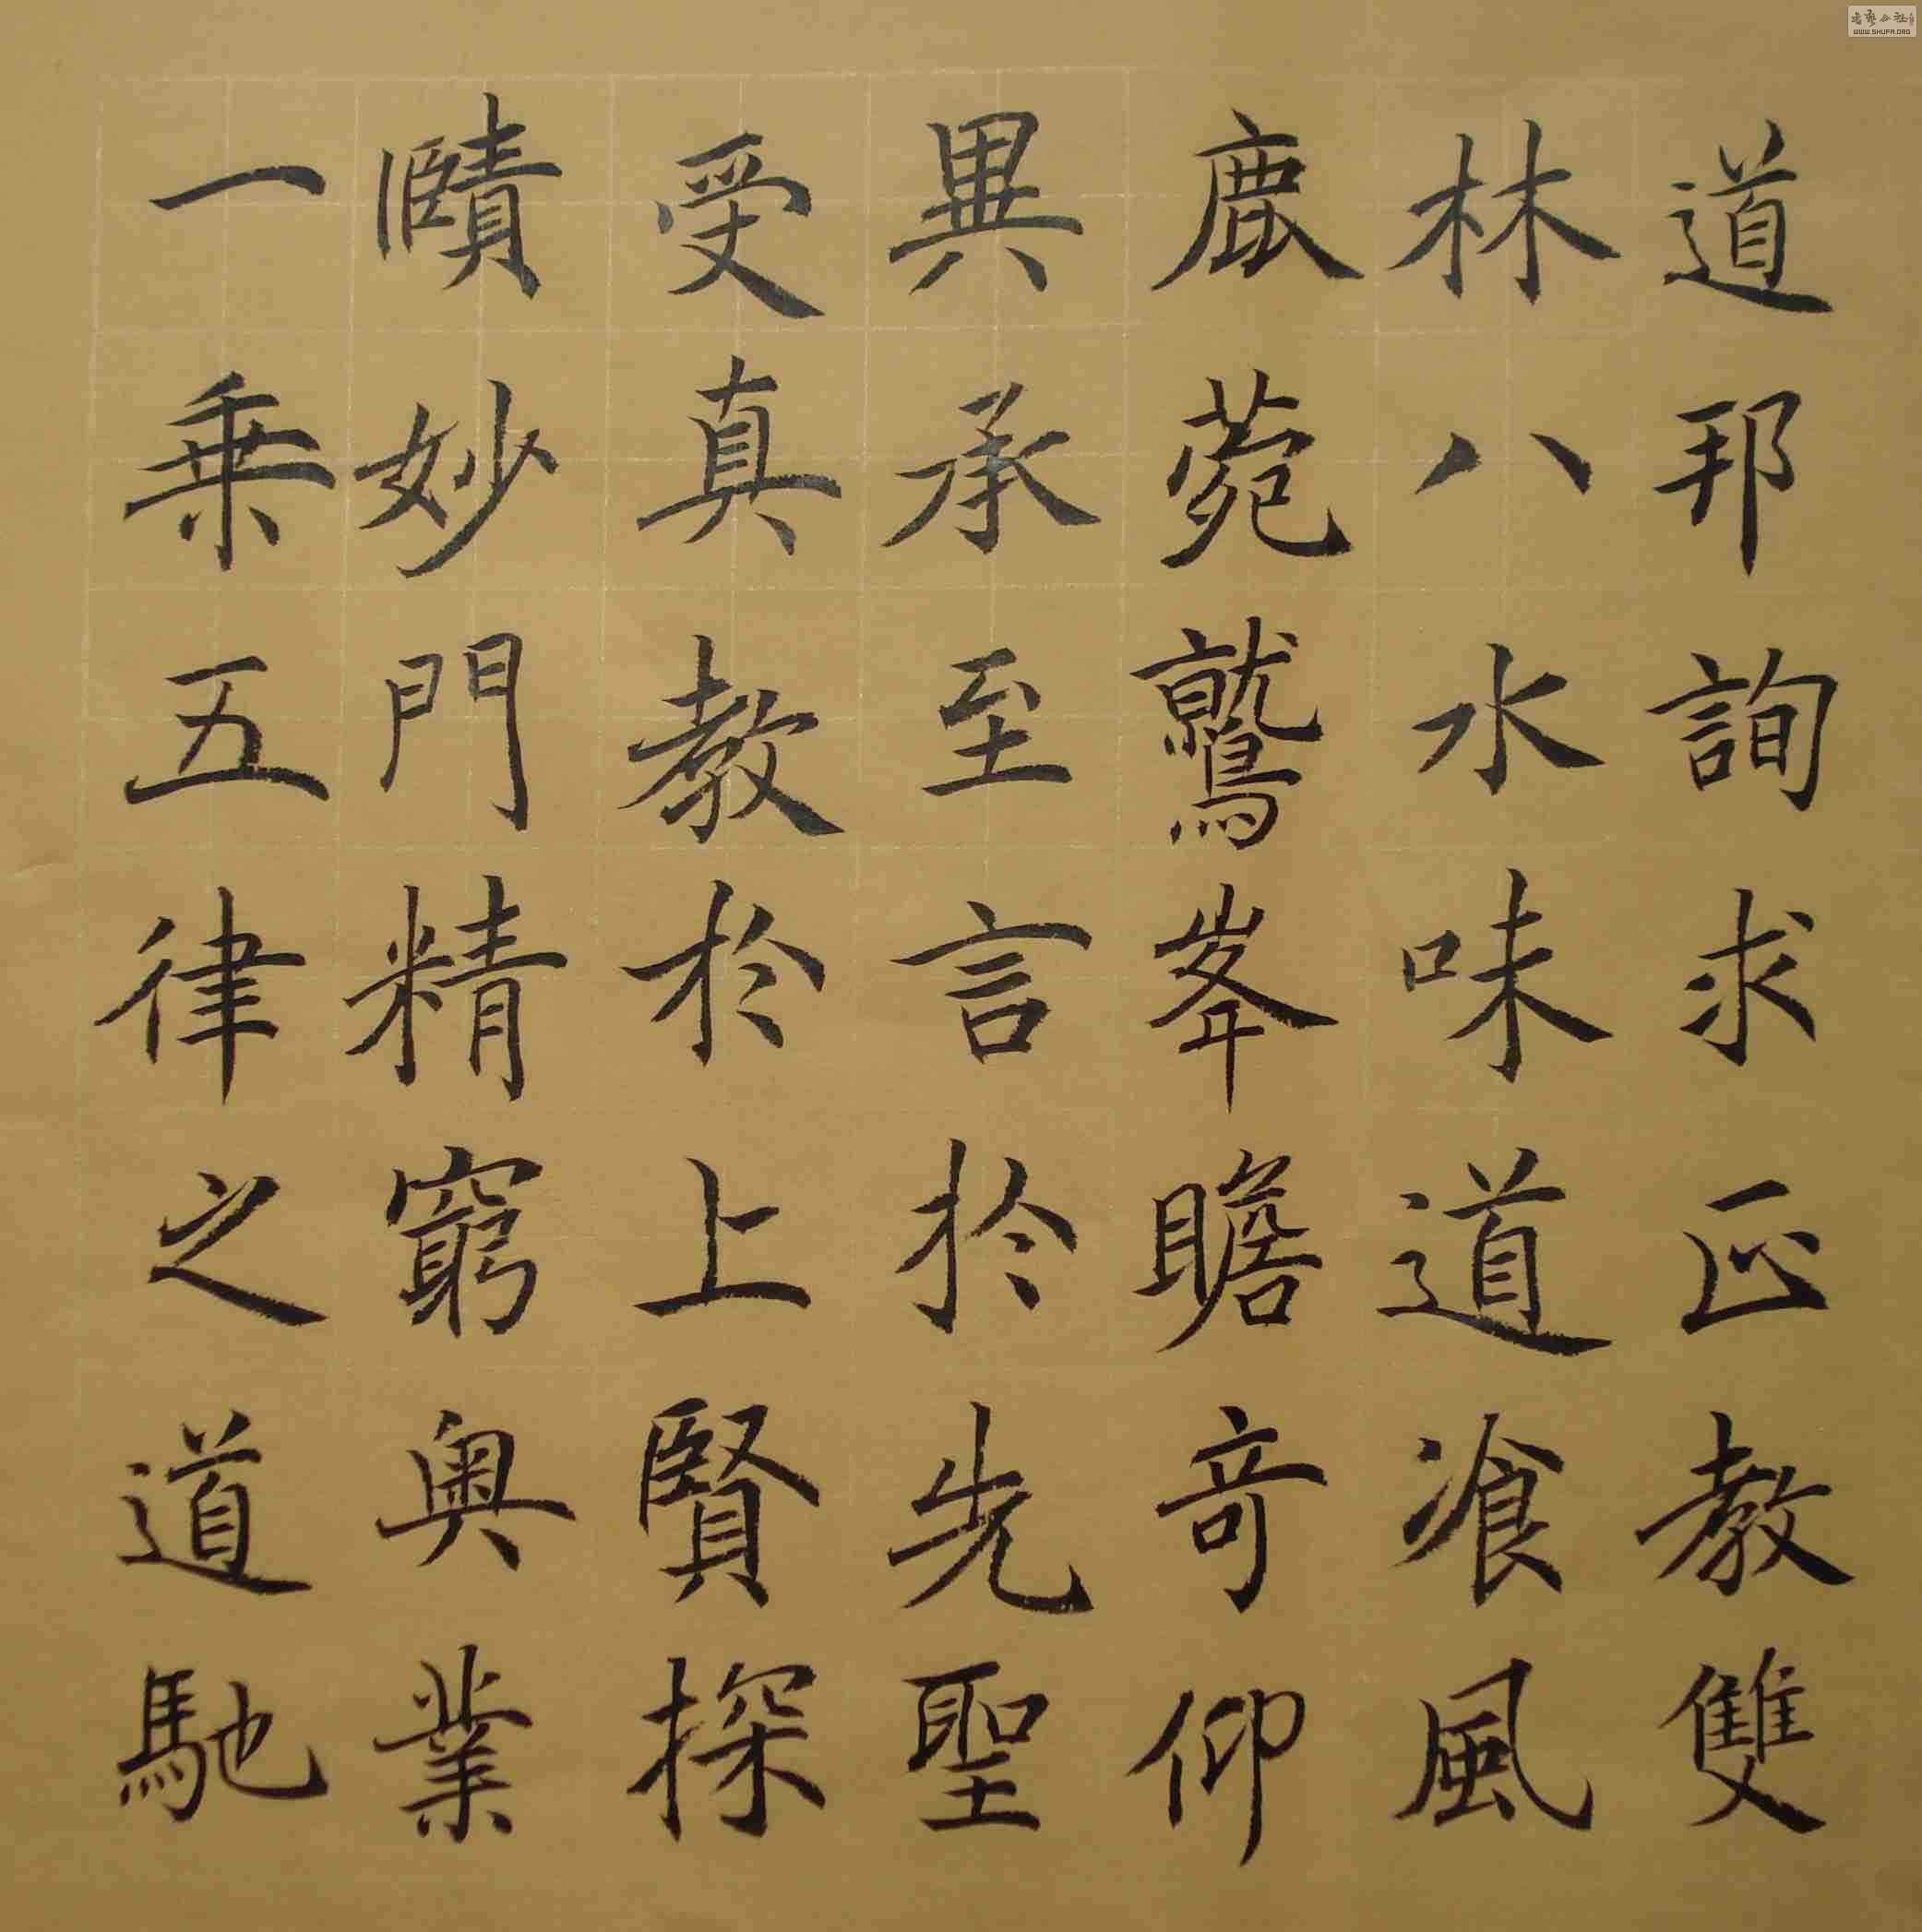 道邦詢求正教雙
林八水味道飡風
鹿菀鷲峯瞻奇仰
異承至言於先聖
受真教於上賢探
賾妙門精窮奥業
一乗五律之道馳
WWW.SHUFA.ORG